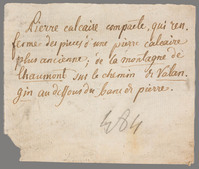 Pierre calcaire compacte, qui ren,
ferme des pieces d'une pierre calcaire
plus ancienne; de la montagne de
Chaumont sur le chemin de Valan,
gin au dessous du banc de pierre.